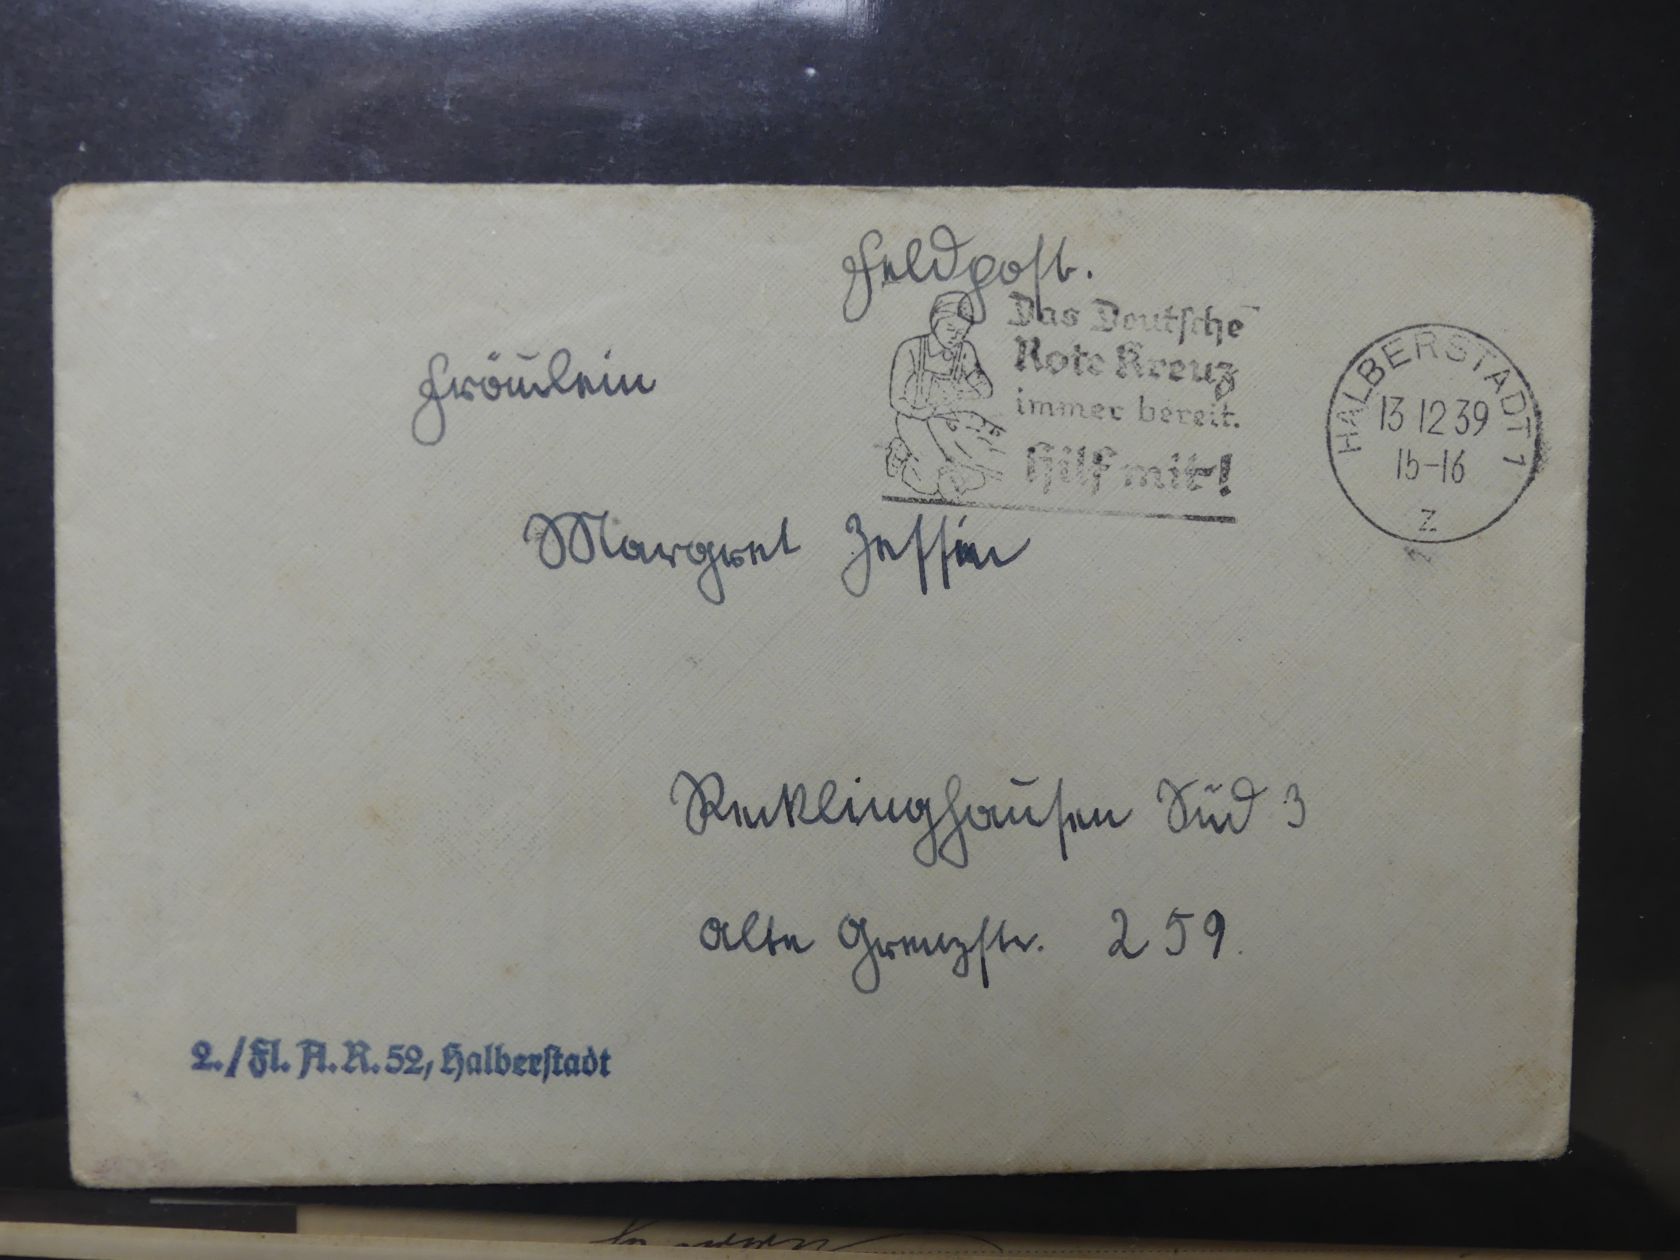 Feldpost.
Das Deutsche
Rote Kreuz
immer bereit.
Hilf mit!
HALBERSTADT 1
13 12 39
15-16
z
Fräulein
Margret Zessin
Recklinghausen Süd 3
Alte Grenzstr. 259.
2./Fl. A. R. 52, Halberstadt